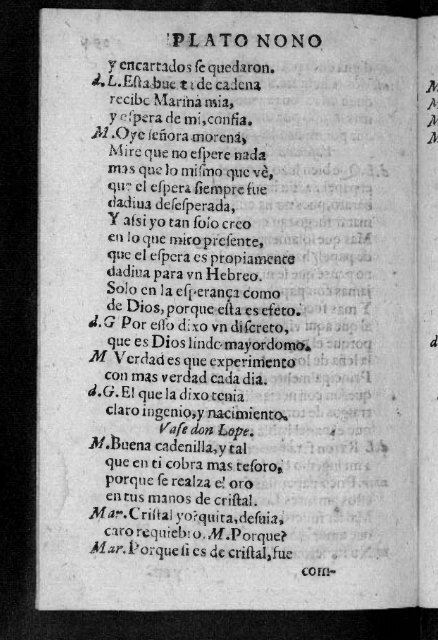 PLATO NONO
y encartados se quedaron.
d.L.Esta bue de cadena
recibe Marina mia,
y espera de mi, confia.
M.Oye señora morena,
Mire que no espere nada
mas que lo mismo que vè,
que el espera siempre fue
dadiua desesperada,
Y assi yo tan solo creo
en lo que miro presente,
que el espera es propiamente
dadiua para vn Hebreo.
Solo en la esperança como
de Dios, porque esta es efeto.
d.G Por esso dixo vn discreto,
que es Dios lindo mayordomo.
M Verdad es que experimento
con mas verdad cada dia.
d.G.El que la dixo tenia
claro ingenio, y nacimiento.
Vase don Lope.
M.Buena cadenilla, y tal
que en ti cobra mas tesoro,
porque se realza el oro
en tus manos de cristal.
Mar.Cristal yo?quita, desuia,
caro requiebro. M.Porque?
Mar.Porque si es de cristal, fue
com-